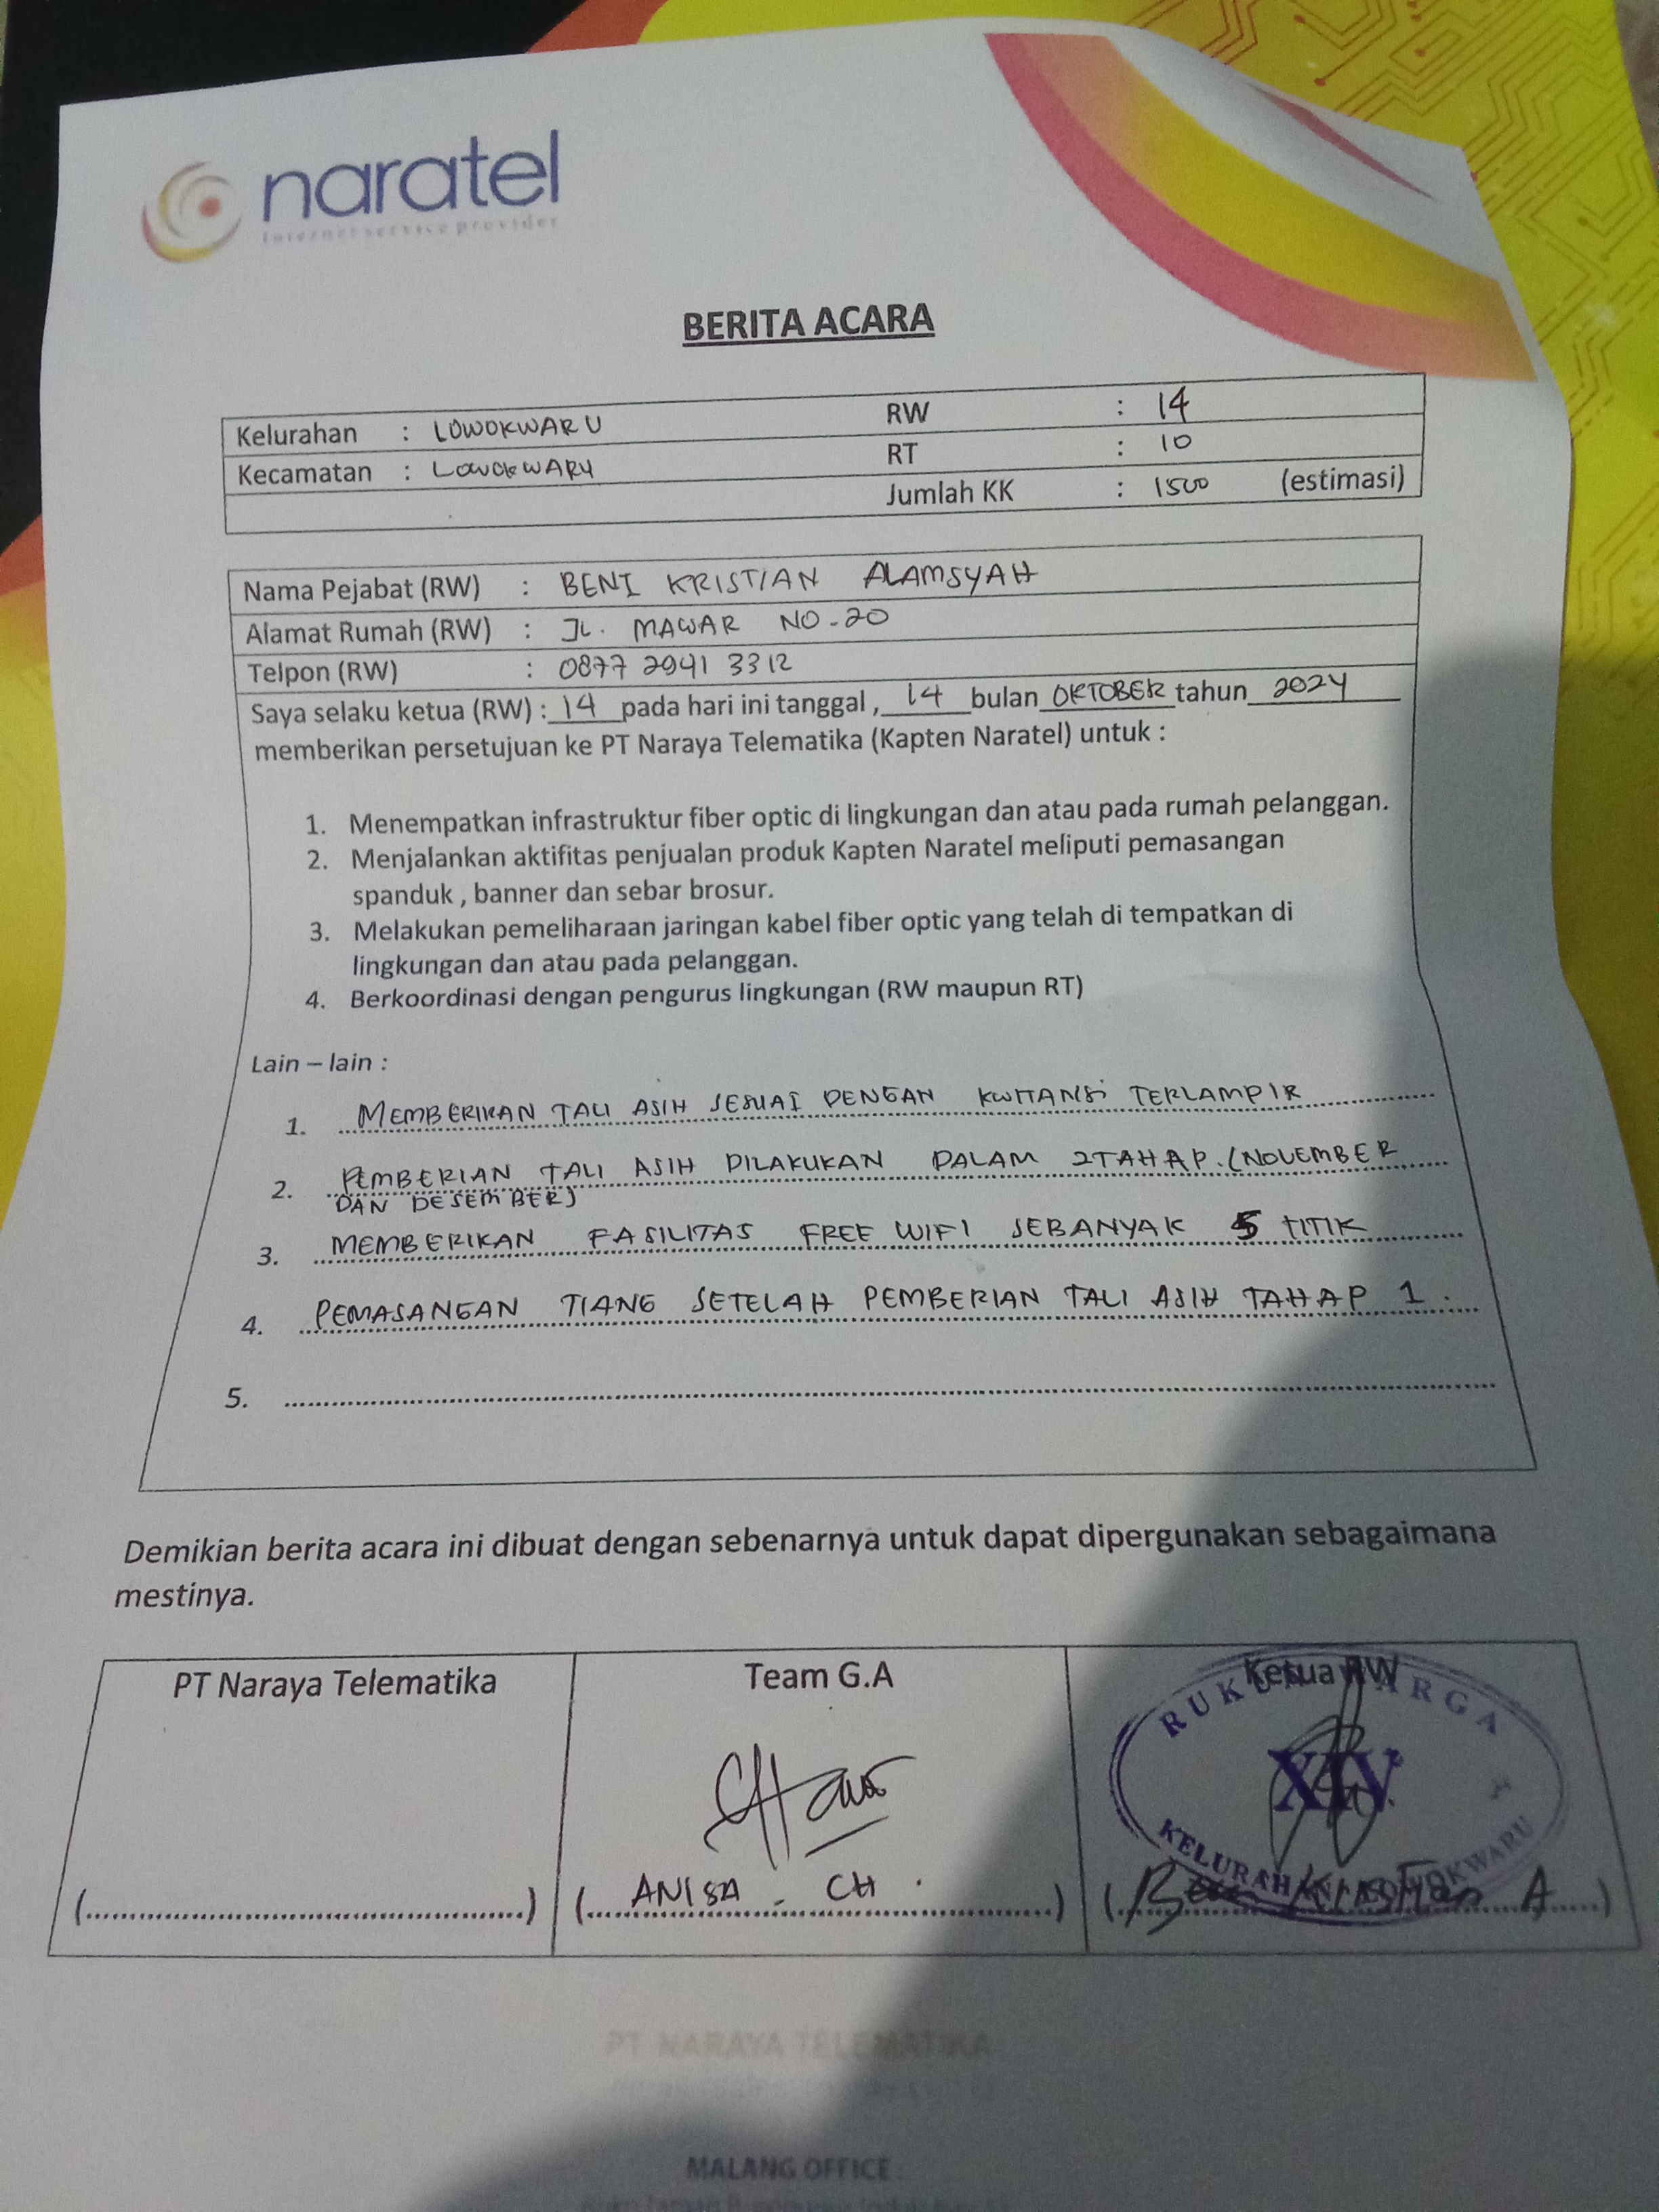 naratel
Internet service provider
BERITA ACARA
Kelurahan : LOWOKWARU RW : 14
Kecamatan : LOWOKWARU RT : 10
Jumlah KK : 1500 (estimasi)
Nama Pejabat (RW) : BENI KRISTIAN ALAMSYAH
Alamat Rumah (RW) : JL. MAWAR NO-20
Telpon (RW) : 0877 2941 3312
Saya selaku ketua (RW) : 14 pada hari ini tanggal , 14 bulan OKTOBER tahun 2024
memberikan persetujuan ke PT Naraya Telematika (Kapten Naratel) untuk :
1. Menempatkan infrastruktur fiber optic di lingkungan dan atau pada rumah pelanggan.
2. Menjalankan aktifitas penjualan produk Kapten Naratel meliputi pemasangan
spanduk , banner dan sebar brosur.
3. Melakukan pemeliharaan jaringan kabel fiber optic yang telah di tempatkan di
lingkungan dan atau pada pelanggan.
4. Berkoordinasi dengan pengurus lingkungan (RW maupun RT)
Lain – lain :
1. MEMBERIKAN TALI ASIH SESUAI DENGAN KWITANSI TERLAMPIR
2. PEMBERIAN TALI ASIH DILAKUKAN DALAM 2 TAHAP. (NOVEMBER
DAN DESEMBER)
3. MEMBERIKAN FASILITAS FREE WIFI SEBANYAK 5 TITIK
4. PEMASANGAN TIANG SETELAH PEMBERIAN TALI ASIH TAHAP 1.
5.
Demikian berita acara ini dibuat dengan sebenarnya untuk dapat dipergunakan sebagaimana
mestinya.
PT Naraya Telematika Team G.A Ketua RW
RUKUN WARGA
XIV
KELURAHAN LOWOKWARU
(ANISA - CH .) (Beni Kristian A)
PT NARAYA TELEMATIKA
MALANG OFFICE